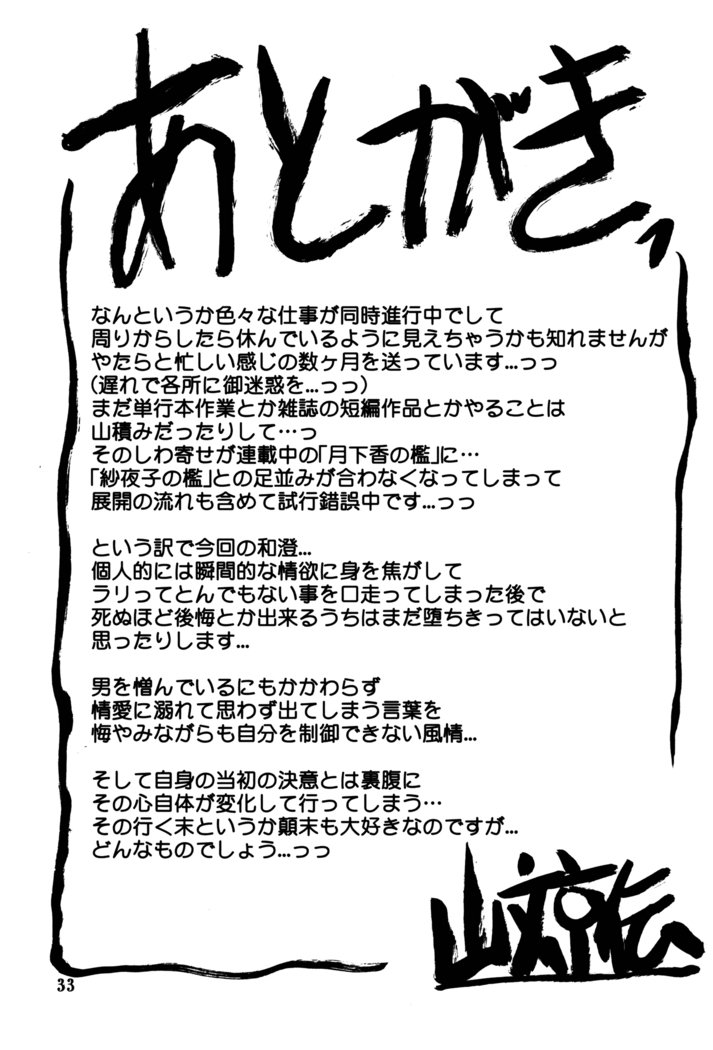 あとがきっ
なんというか色々な仕事が同時進行中でして
周りからしたら休んでいるように見えちゃうかも知れませんが
やたらと忙しい感じの数ヶ月を送っています…っっ
(遅れで各所に御迷惑を…っっ)
まだ単行本作業とか雑誌の短編作品とかやることは
山積みだったりして…っ
そのしわ寄せが連載中の「月下香の檻」に…
「紗夜子の檻」との足並みが合わなくなってしまって
展開の流れも含めて試行錯誤中です…っっ
という訳で今回の和澄…
個人的には瞬間的な情欲に身を焦がして
ラリってとんでもない事を口走ってしまった後で
死ぬほど後悔とか出来るうちはまだ堕ちきってはいないと
思ったりします…
男を憎んでいるにもかかわらず
情愛に溺れて思わず出てしまう言葉を
悔やみながらも自分を制御できない風情…
そして自身の当初の決意とは裏腹に
その心自体が変化して行ってしまう…
その行く末というか顛末も大好きなのですが…
どんなものでしょう…っっ
山文京伝
33